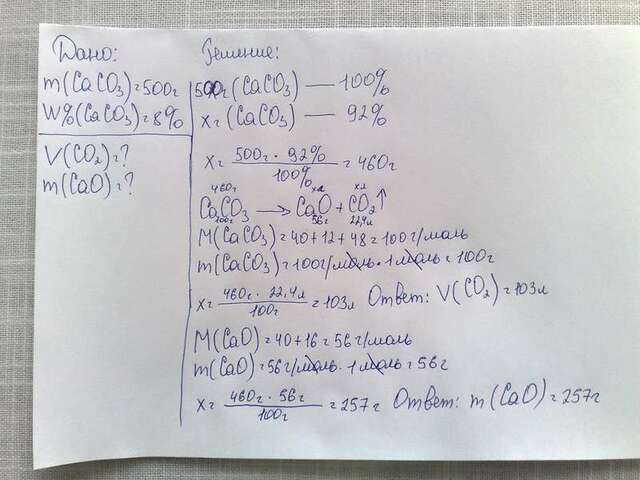 Дано:
m(CaCO3)=500г
W%(CaCO3)=8%
V(CO2)=?
m(CaO)=?
Решение:
500г (CaCO3) — 100%
xг (CaCO3) — 92%
x = 500г · 92% / 100% = 460г
460г x2 x2
CaCO3 → CaO + CO2↑
100г 56г 22,4л
M(CaCO3)=40+12+48=100г/моль
m(CaCO3)=100г/моль · 1моль=100г
x = 460г · 22,4л / 100г = 103л Ответ: V(CO2)=103л
M(CaO)=40+16=56г/моль
m(CaO)=56г/моль · 1моль=56г
x = 460г · 56г / 100г = 257г Ответ: m(CaO)=257г